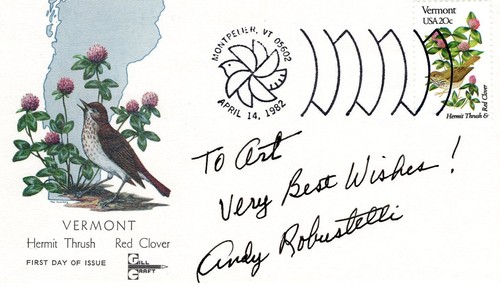 MONTPELIER, VT 05602
APRIL 14, 1982
Vermont
USA 20c
Hermit Thrush &
Red Clover
To Art
Very Best Wishes!
Andy Robustelli
VERMONT
Hermit Thrush Red Clover
FIRST DAY OF ISSUE
GILL CRAFT